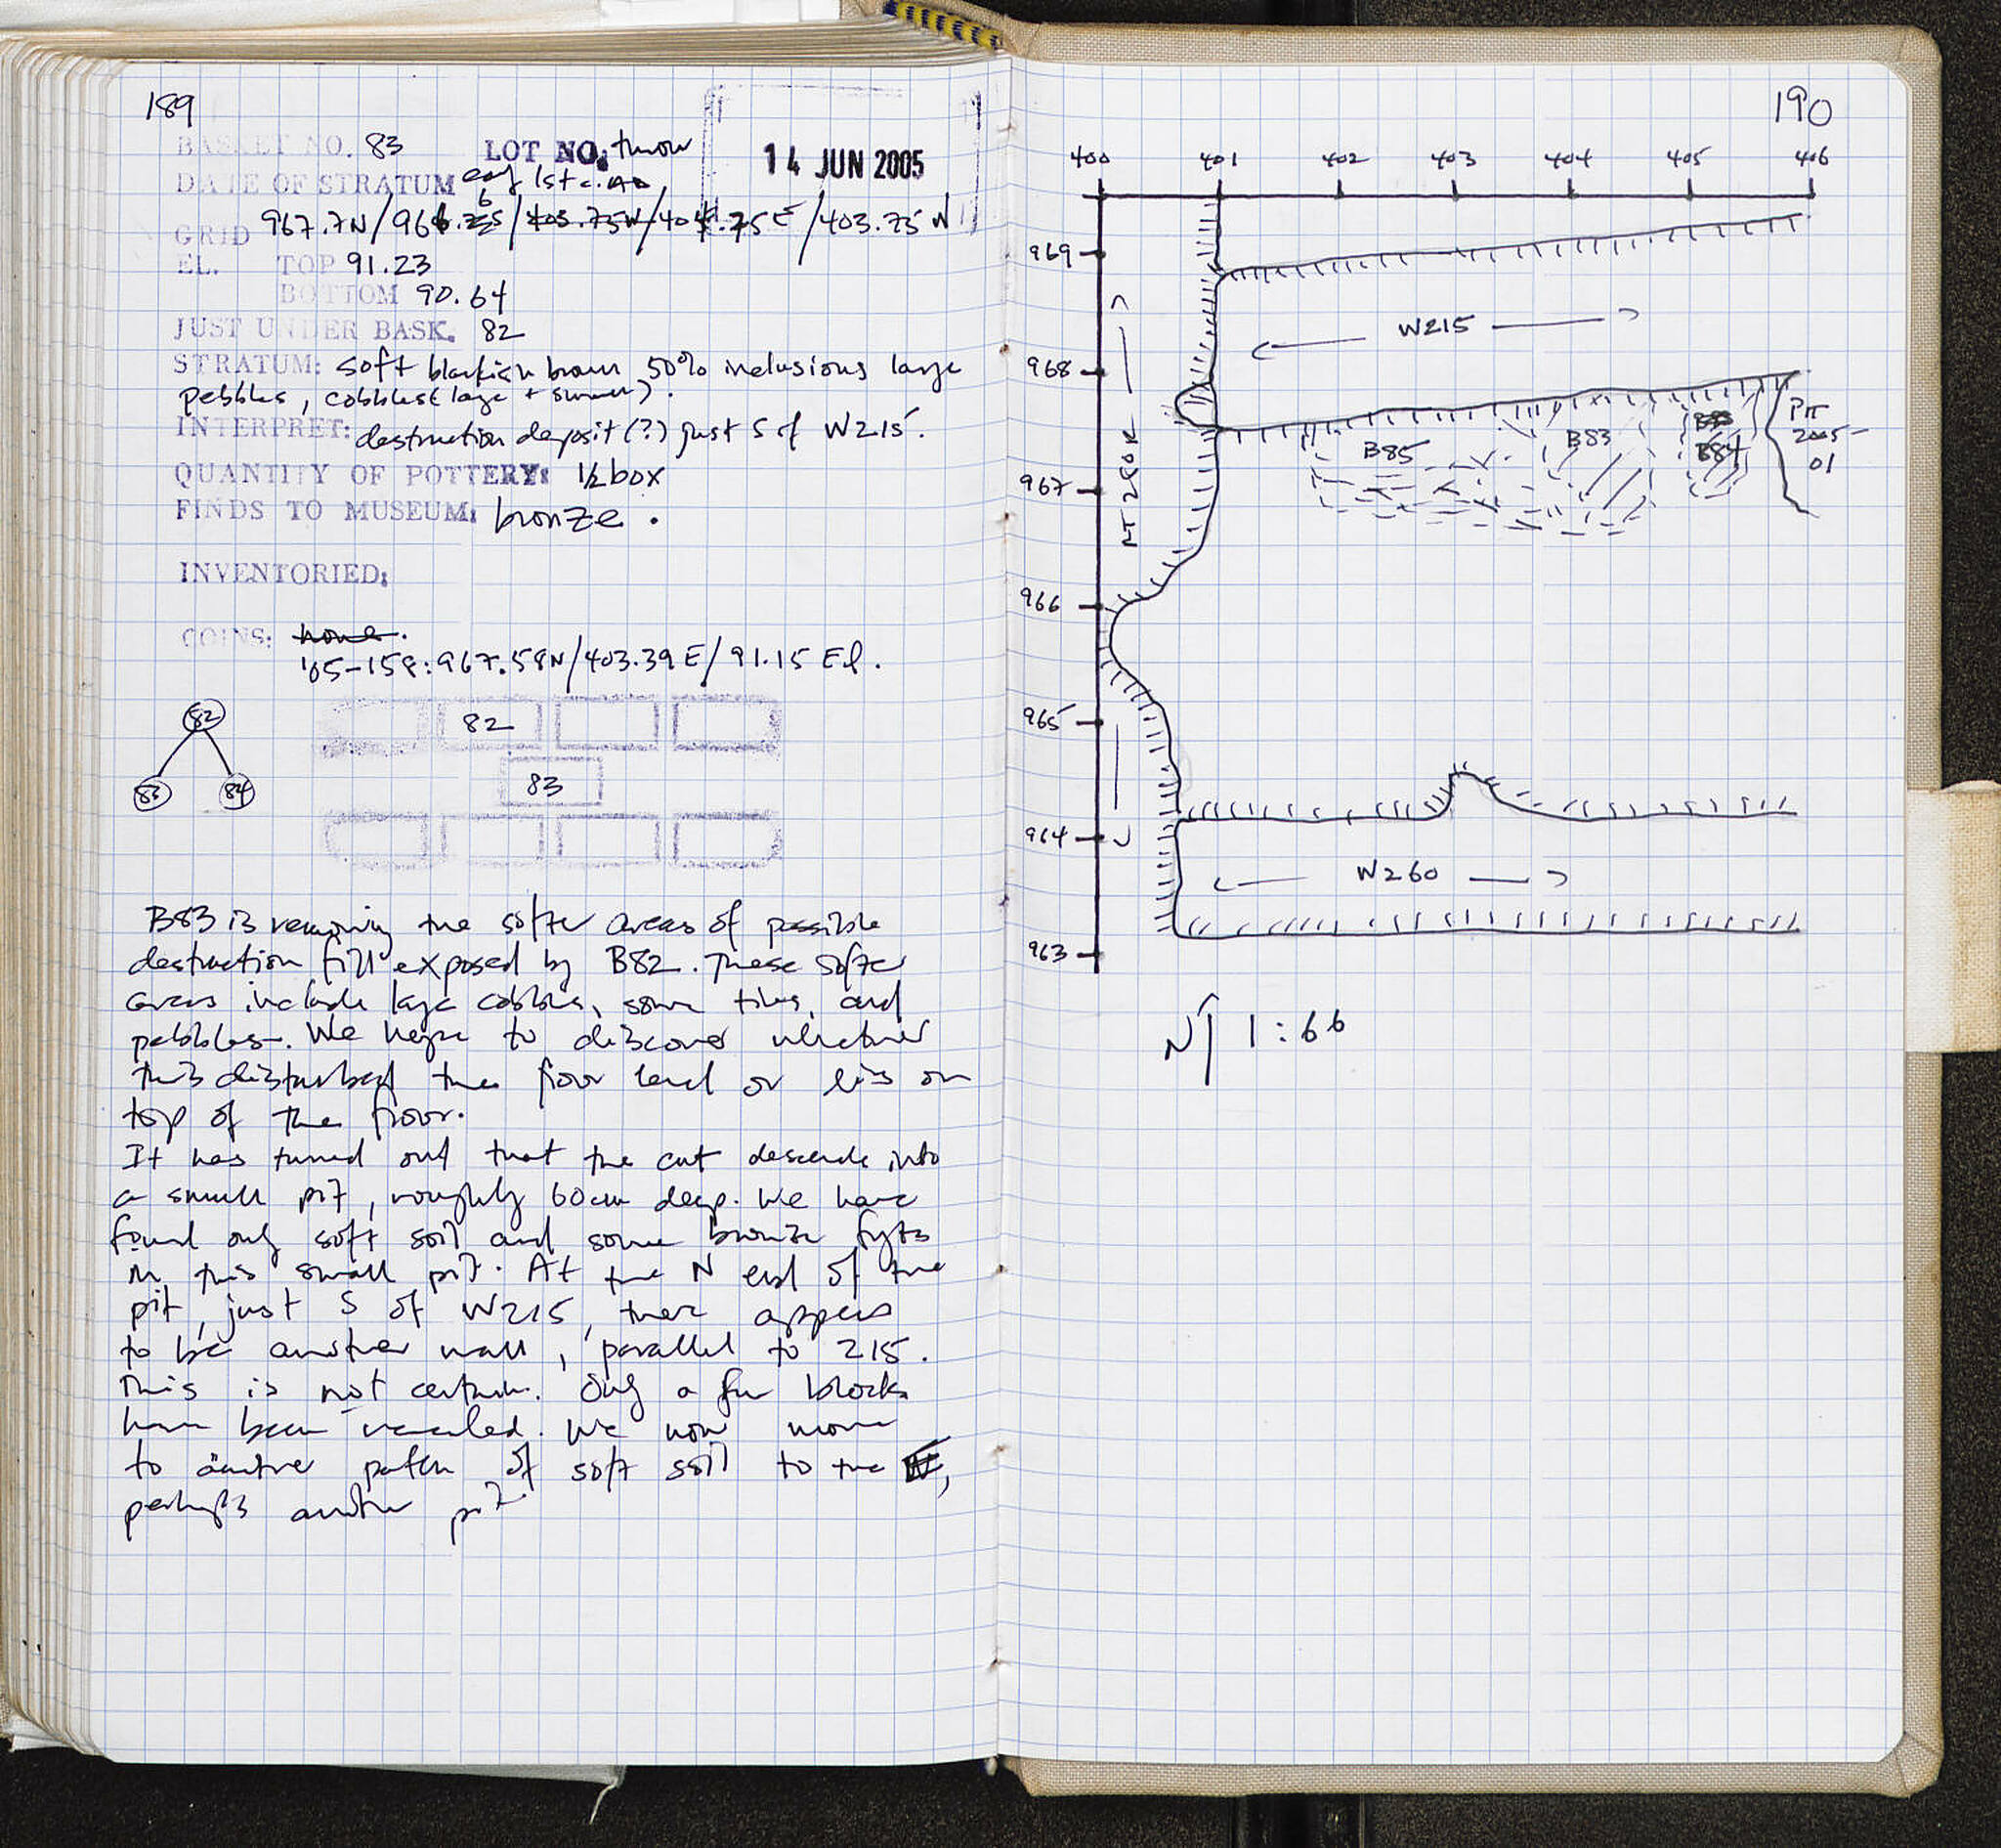 189
BASKET NO. 83 LOT NO. throw
14 JUN 2005
DATE OF STRATUM early 1st c. AD
GRID 967.7N/966. /403.75W/404.75E/403.75W
EL. TOP 91.23
BOTTOM 90.64
JUST UNDER BASK. 82
STRATUM: soft blackish brown 50% inclusions large
pebbles, cobbles (large + smaller).
INTERPRET: destruction deposit (?) just S of W215.
QUANTITY OF POTTERY: 1/2 box
FINDS TO MUSEUM: bronze.
INVENTORIED:
COINS: none.
'05-158: 967.58N/403.39E/91.15 El.
82
83 84
82
83
B83 is removing the softer areas of possible
destruction fill exposed by B82. These softer
areas include large cobbles, some tiles, and
pebbles. We hope to discover whether
this disturbed the floor level or lies on
top of the floor.
It has turned out that the cut descends into
a small pit, roughly 60cm deep. We have
found only soft soil and some bronze frgts
in this small pit. At the N end of the
pit, just S of W215, there appears
to be another wall, parallel to 215.
This is not certain. Only a few blocks
have been revealed. We now move
to another patch of soft soil to the E,
perhaps another pit.
190
400 401 402 403 404 405 406
969
968
967
966
965
964
963
W215
NT 250N
B85
B83
B83
B84
Pit
2005-
01
W260
N 1:66